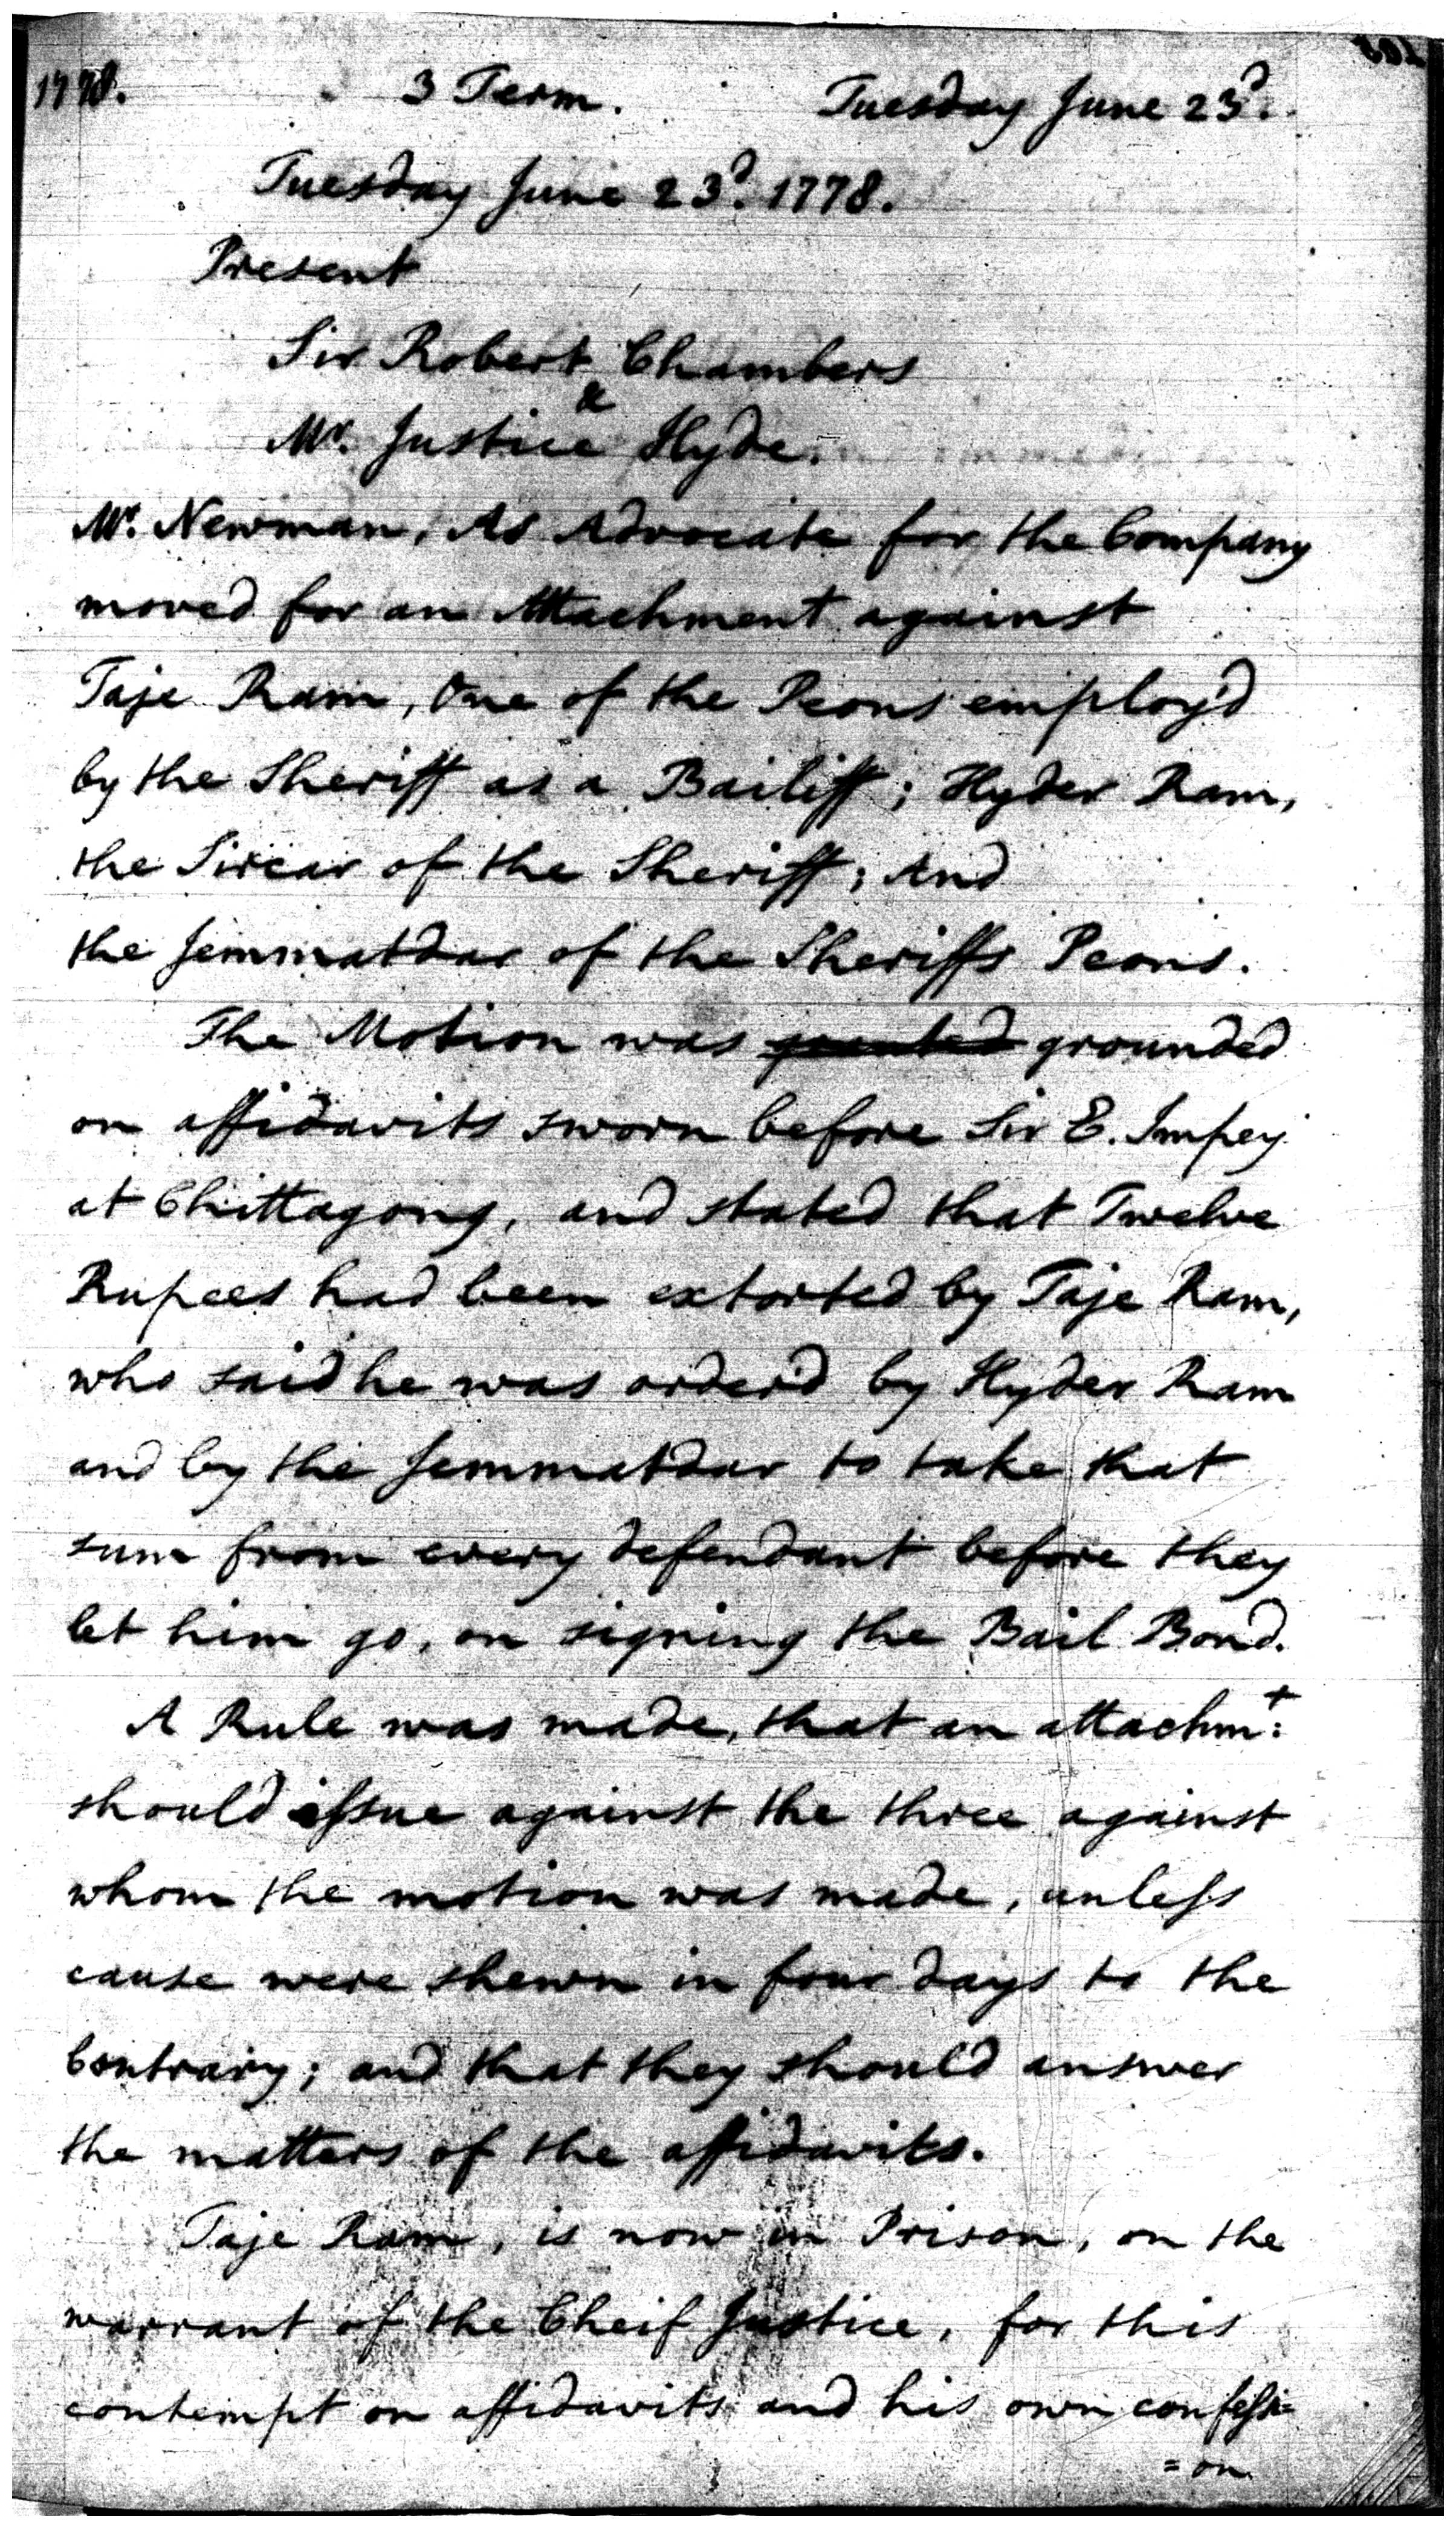 1778. 3 Term. Tuesday June 23d.
Tuesday June 23d. 1778.
Present
Sir Robert Chambers
&
Mr. Justice Hyde.
Mr. Newman, As Advocate for the Company
moved for an Attachment against
Taje Ram, One of the Peons employ'd
by the Sheriff as a Bailiff; Hyder Ram,
the Sircar of the Sheriff; And
the Jemmatdar of the Sheriffs Peons.
The Motion was granted grounded
on affidavits sworn before Sir E. Impey
at Chittagong, and stated that Twelve
Rupees had been extorted by Taje Ram,
who said he was order'd by Hyder Ram
and by the Jemmatdar to take that
sum from every defendant before they
let him go, on signing the Bail Bond.
A Rule was made, that an attachmt:
should issue against the three against
whom the motion was made, unless
cause were shewn in four days to the
Contrary; and that they should answer
the matters of the affidavits.
Taje Ram, is now in Prison, on the
warrant of the Cheif Justice, for this
contempt on affidavits and his own confessi=
=on.